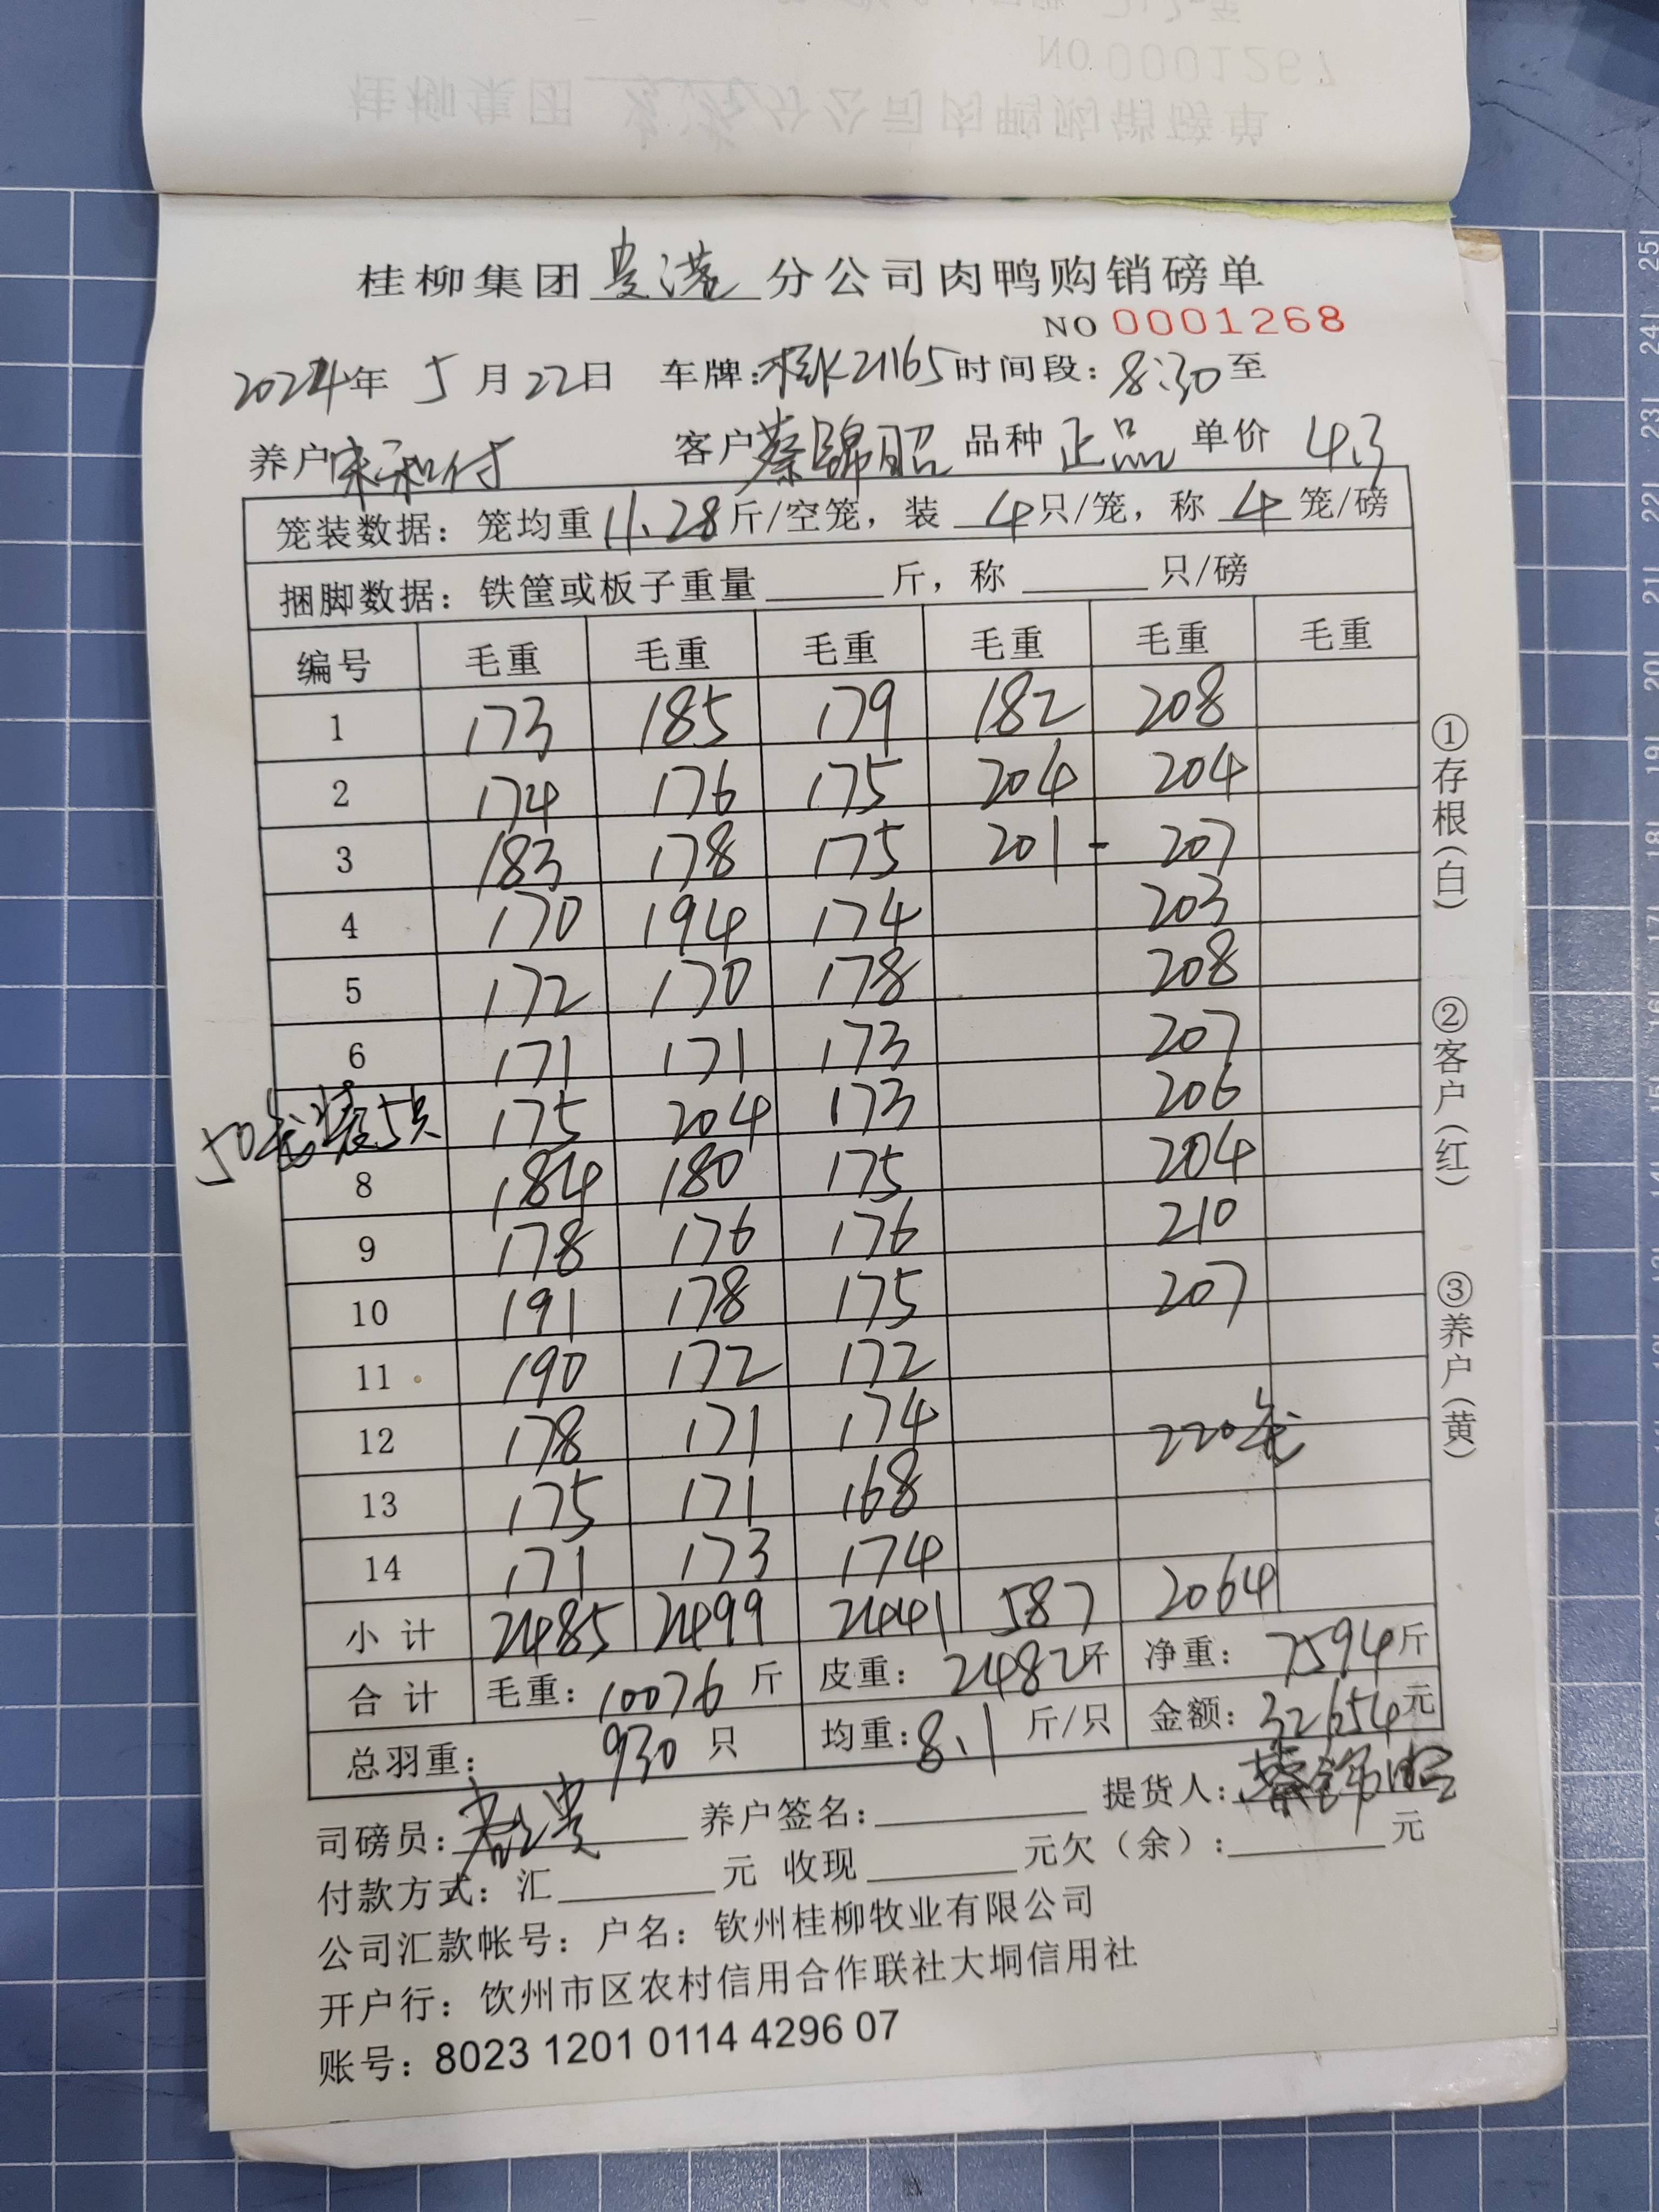 桂柳集团贵港分公司肉鸭购销磅单
NO 0001268
2024年 5 月 22日 车牌:桂K21165 时间段: 8:30 至
养户 宋和付 客户 蔡锦昭 品种 正品 单价 4.3
笼装数据: 笼均重 11.28 斤/空笼, 装 4 只/笼, 称 4 笼/磅
捆脚数据: 铁筐或板子重量 斤, 称 只/磅
编号 毛重 毛重 毛重 毛重 毛重 毛重
1 173 185 179 182 208
2 174 176 175 204 204
3 183 178 175 201 - 207
4 170 194 174 203
5 172 170 178 208
6 171 171 173 207
50笼装5只 175 204 173 206
8 184 180 175 204
9 178 176 176 210
10 191 178 175 207
11 190 172 172
12 178 171 174 220笼
13 175 171 168
14 171 173 174
小计 2485 2499 2441 587 2064
合计 毛重: 10076 斤 皮重: 2482斤 净重: 7594斤
总羽重: 930 只 均重: 8.1 斤/只 金额: 32654元
司磅员: 养户签名: 提货人: 蔡锦昭
付款方式: 汇 元 收现 元欠(余): 元
公司汇款帐号: 户名: 钦州桂柳牧业有限公司
开户行: 钦州市区农村信用合作联社大垌信用社
账号: 8023 1201 0114 4296 07
①存根(白) ②客户(红) ③养户(黄)